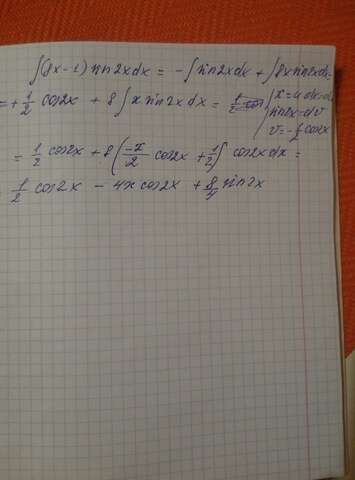 ∫(8x-1) sin2xdx = -∫sin2xdx + ∫8x sin2xdx
= +1/2 cos2x + 8∫x sin2x dx = | x=u dx=du
sin2x=dv
v=-1/2 cos2x
= 1/2 cos2x + 8(-x/2 cos2x + 1/2)∫ cos2x dx =
1/2 cos2x - 4x cos2x + 8/4 sin2x